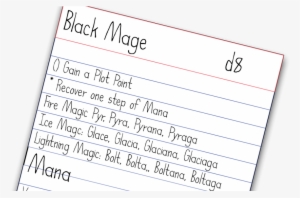 Black Mage d8
O Gain a Plot Point
* Recover one step of Mana
Fire Magic: Pyr, Pyra, Pyrana, Pyraga
Ice Magic: Glace, Glacia, Glaciana, Glaciaga
Lightning Magic: Bolt, Bolta,, Boltana, Boltaga
Mana